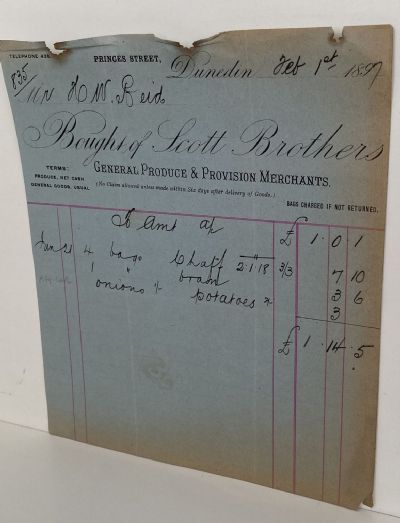 TELEPHONE 436.
PRINCES STREET,
Dunedin Feb 1st 1897
835
Mr H W. Reid
Bought of Scott Brothers
GENERAL PRODUCE & PROVISION MERCHANTS.
TERMS:
PRODUCE, NET CASH
GENERAL GOODS, USUAL
(No Claim allowed unless made within Six days after delivery of Goods.)
BAGS CHARGED IF NOT RETURNED.
To Amt a/c £ 1 . 0 1
Jan 21 4 bags Chaff 2.1.18 3/3 7 10
1 " bran 3 6
onions potatoes 3
£ 1 . 14 . 5